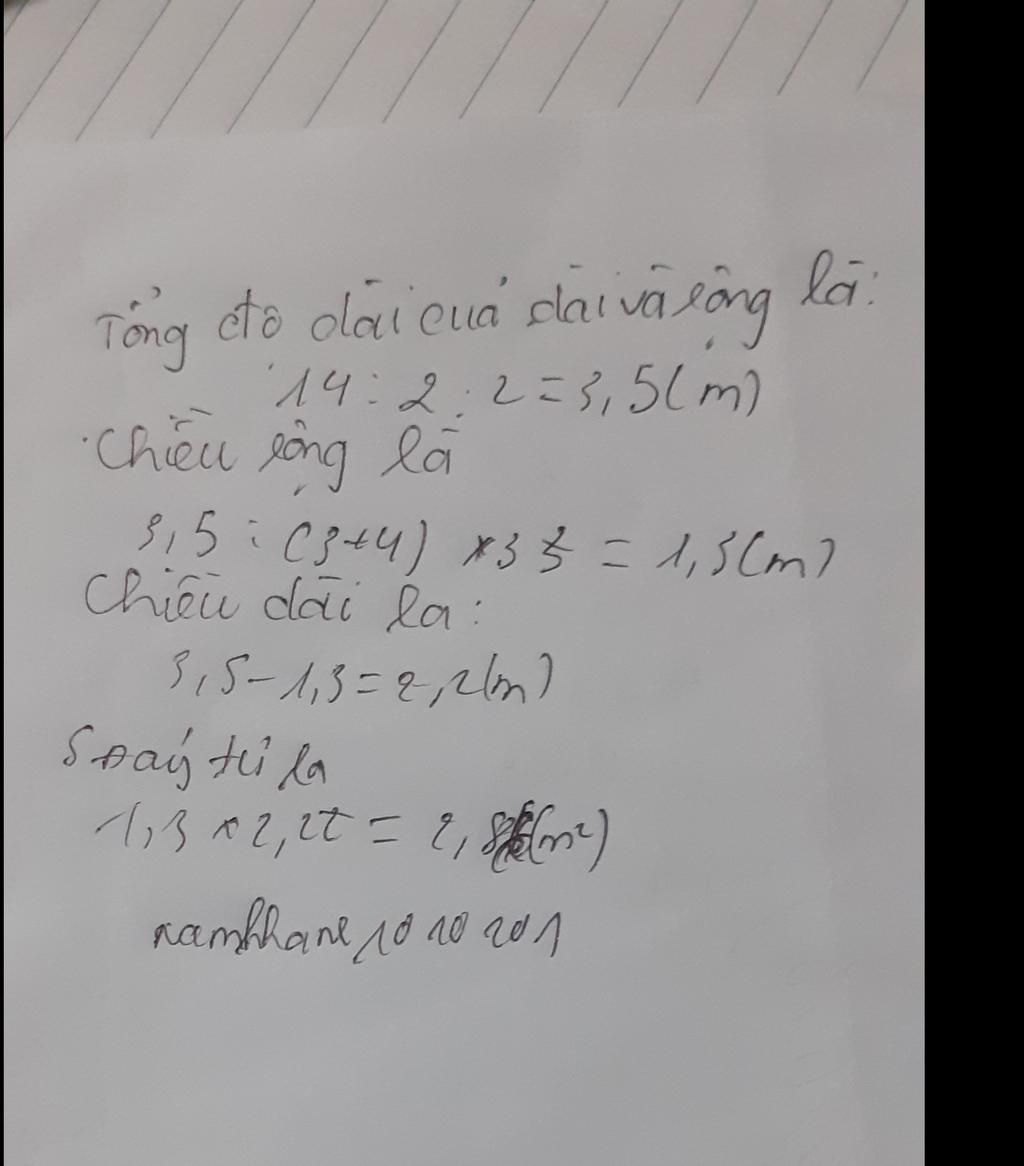 Tổng độ dài của dài và rộng là:
14 : 2 : 2 = 3,5 (m)
Chiều rộng là
3,5 : (3+4) × 3 = 1,3 (m)
Chiều dài là:
3,5 - 1,3 = 2,2 (m)
S đáy
1,3 × 2,2 = 2,8 (m²)
namkhane 10 10 201